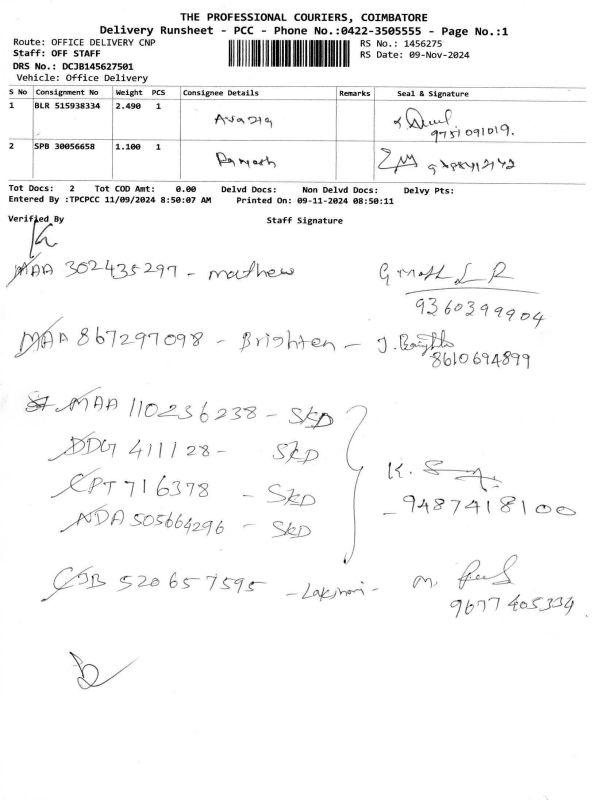 THE PROFESSIONAL COURIERS, COIMBATORE
Delivery Runsheet - PCC - Phone No.:0422-3505555 - Page No.:1
Route: OFFICE DELIVERY CNP RS No.: 1456275
Staff: OFF STAFF RS Date: 09-Nov-2024
DRS No.: DCJB145627501
Vehicle: Office Delivery
S No Consignment No Weight PCS Consignee Details Remarks Seal & Signature
1 BLR 515938334 2.490 1
9751091019.
2 SPB 30056658 1.100 1
Tot Docs: 2 Tot COD Amt: 0.00 Delvd Docs: Non Delvd Docs: Delvy Pts:
Entered By :TPCPCC 11/09/2024 8:50:07 AM Printed On: 09-11-2024 08:50:11
Verified By Staff Signature
MAA 302435297 - mathew
9360399904
MAA 867297098 - Brighten - J. Brighten
8610694899
MAA 110236238 - SKD
DDG 411128 - SKD
CPT 716378 - SKD
NDA 505664296 - SKD
K.
- 9487418100
CJB 520657595 - Lakshmi - m.
9677405334